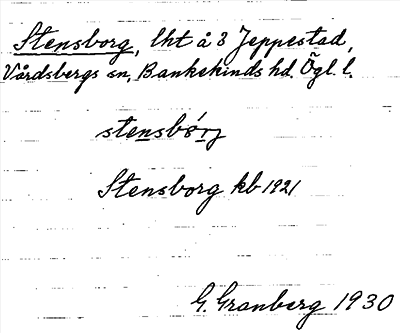 Stensborg, lht å 3 Jeppestad,
Vårdsbergs sn, Bankekinds hd, Ögl. l.
stensbórj
Stensborg kb 1921
G. Granberg 1930